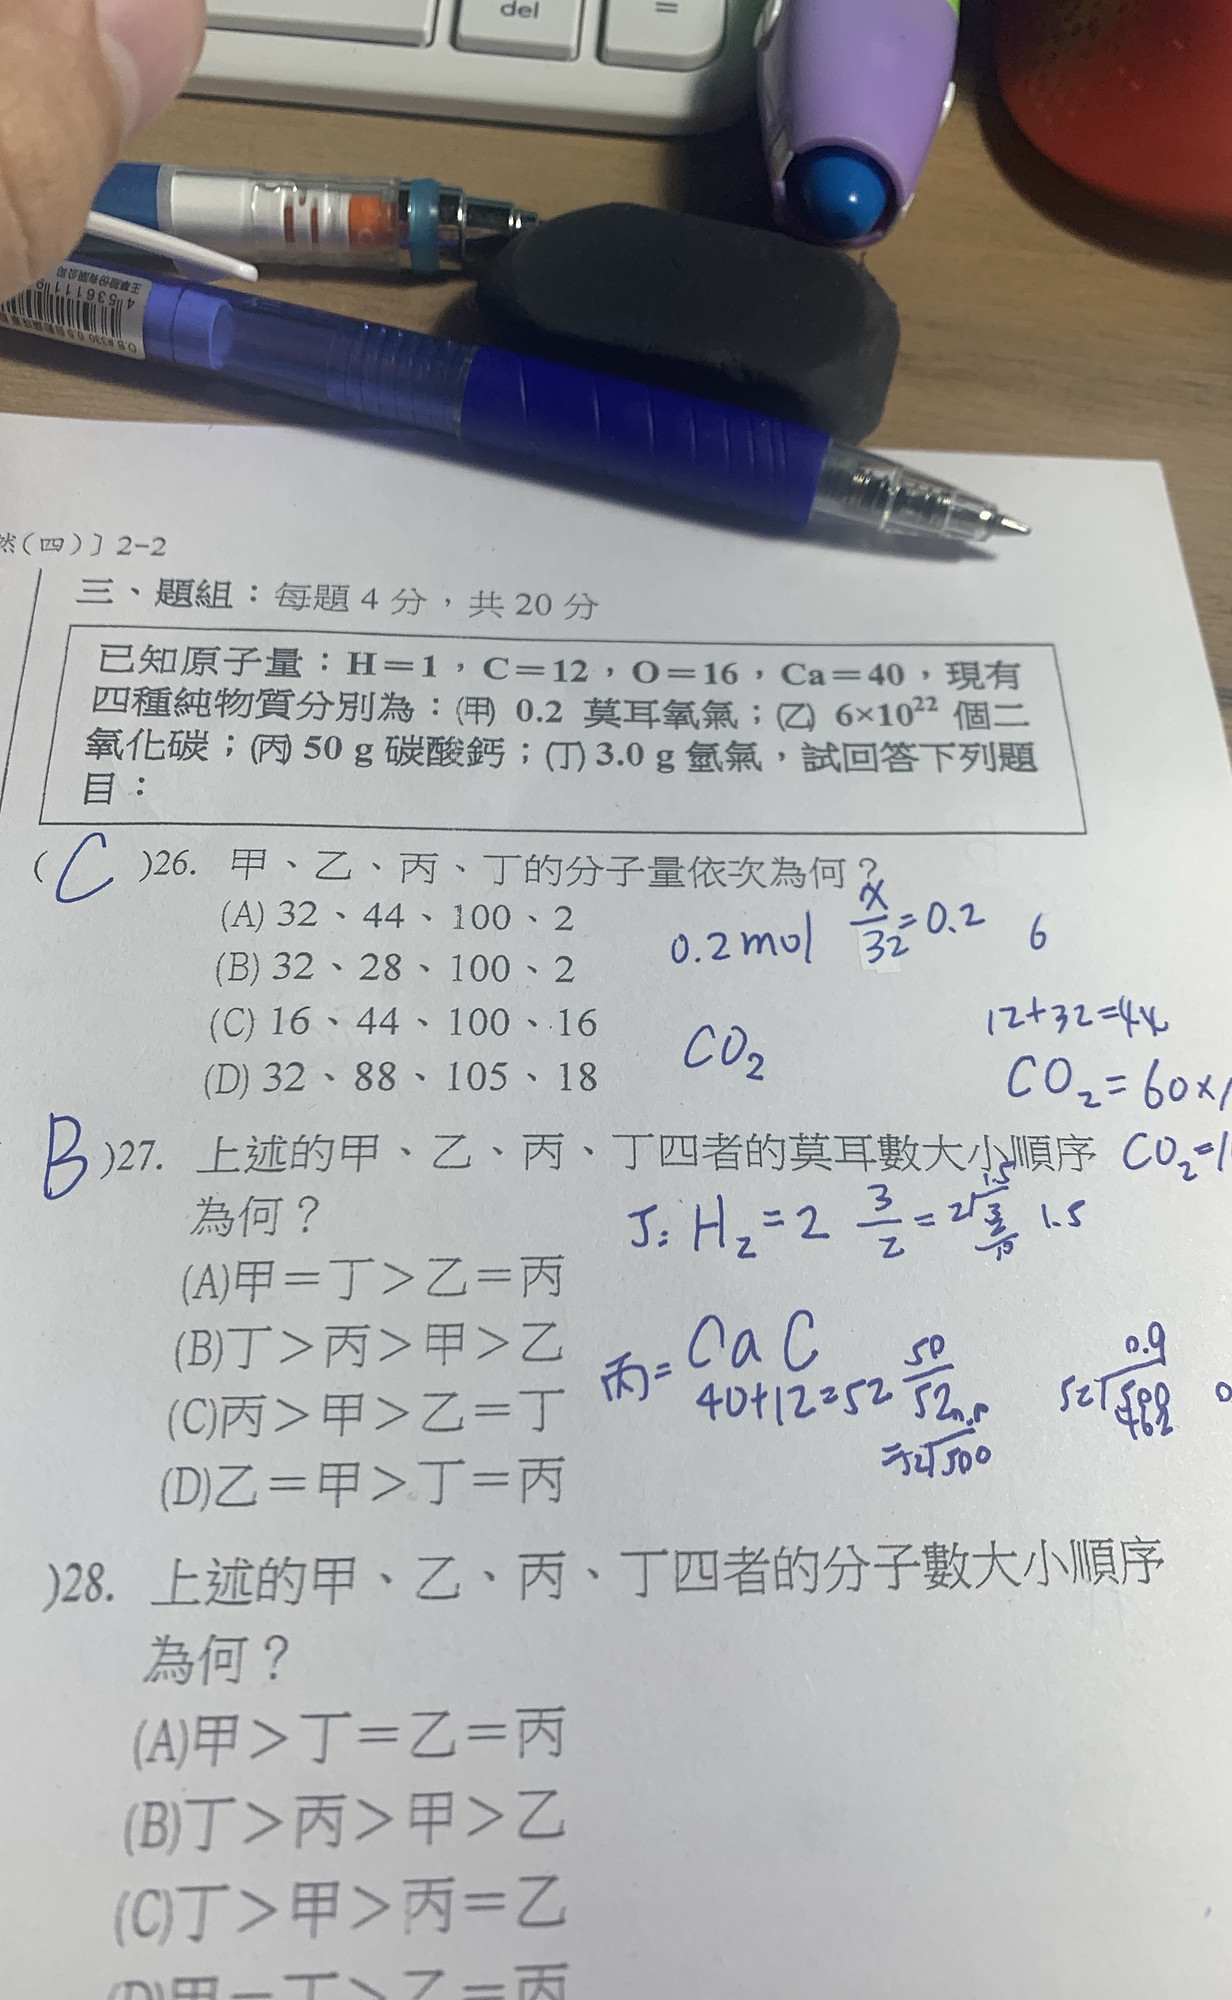 del
=
王華股份有限公司
4 536111 9
然(四)〕2-2
三、題組：每題 4 分，共 20 分
已知原子量：H＝1，C＝12，O＝16，Ca＝40，現有
四種純物質分別為：(甲) 0.2 莫耳氧氣；(乙) 6×10²² 個二
氧化碳；(丙) 50 g 碳酸鈣；(丁) 3.0 g 氫氣，試回答下列題
目：
( C )26. 甲、乙、丙、丁的分子量依次為何？
(A) 32、44、100、2
(B) 32、28、100、2
(C) 16、44、100、16
(D) 32、88、105、18
0.2 mol x/32=0.2 6
12+32=44
CO₂
CO₂=60×1
B )27. 上述的甲、乙、丙、丁四者的莫耳數大小順序
為何？
CO₂=1
丁: H₂=2 3/2= 1.5
(A)甲＝丁＞乙＝丙
(B)丁＞丙＞甲＞乙
(C)丙＞甲＞乙＝丁
(D)乙＝甲＞丁＝丙
丙= Ca C
40+12=52 50/52
=52√500
0.9
52√500
)28. 上述的甲、乙、丙、丁四者的分子數大小順序
為何？
(A)甲＞丁＝乙＝丙
(B)丁＞丙＞甲＞乙
(C)丁＞甲＞丙＝乙
(D)甲＝丁＞乙＝丙